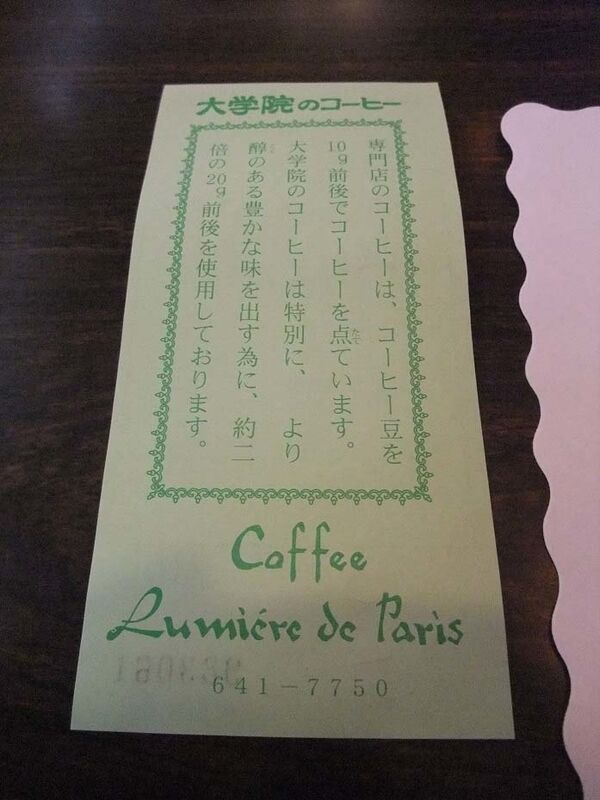 大学院のコーヒー
専門店のコーヒーは、コーヒー豆を
10g前後でコーヒーを点ています。
たて
大学院のコーヒーは特別に、 より
醇のある豊かな味を出す為に、約二
倍の20g前後を使用しております。
Coffee
Lumiére de Paris
641-7750